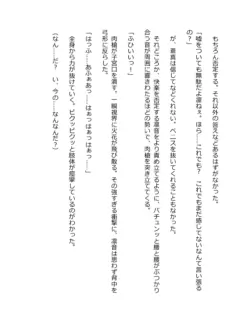 もちろん否定する。それ以外の答えなどあるはずがなかった。
「嘘をついても無駄だよ凛ねぇ。ほら――これでも？　これでもまだ感じないなんて言い張る
の？」
が、蒼真は信じてなどくれない。ペニスを抜いてくれることもなかった。
それどころか、快楽を否定する凛音をより責め立てるように、パチュンッと腰と腰がぶつかり
合う音が周囲に響きわたるほどの勢いで、肉槍を突き立ててくる。
「ふひいいっ」
肉槍が子宮口を潰す。一瞬視界に火花が飛び散る。その強すぎる衝撃に、凛音は思わず背中を
弓形に反らした。
「はっふ……あふぁあっ……はぁっはぁっはぁっ……」
全身から力が抜けていく。ビクッビクッと肢体が痙攣しているのがわかった。
（なん……だ？　い、今の……なんなんだ？）